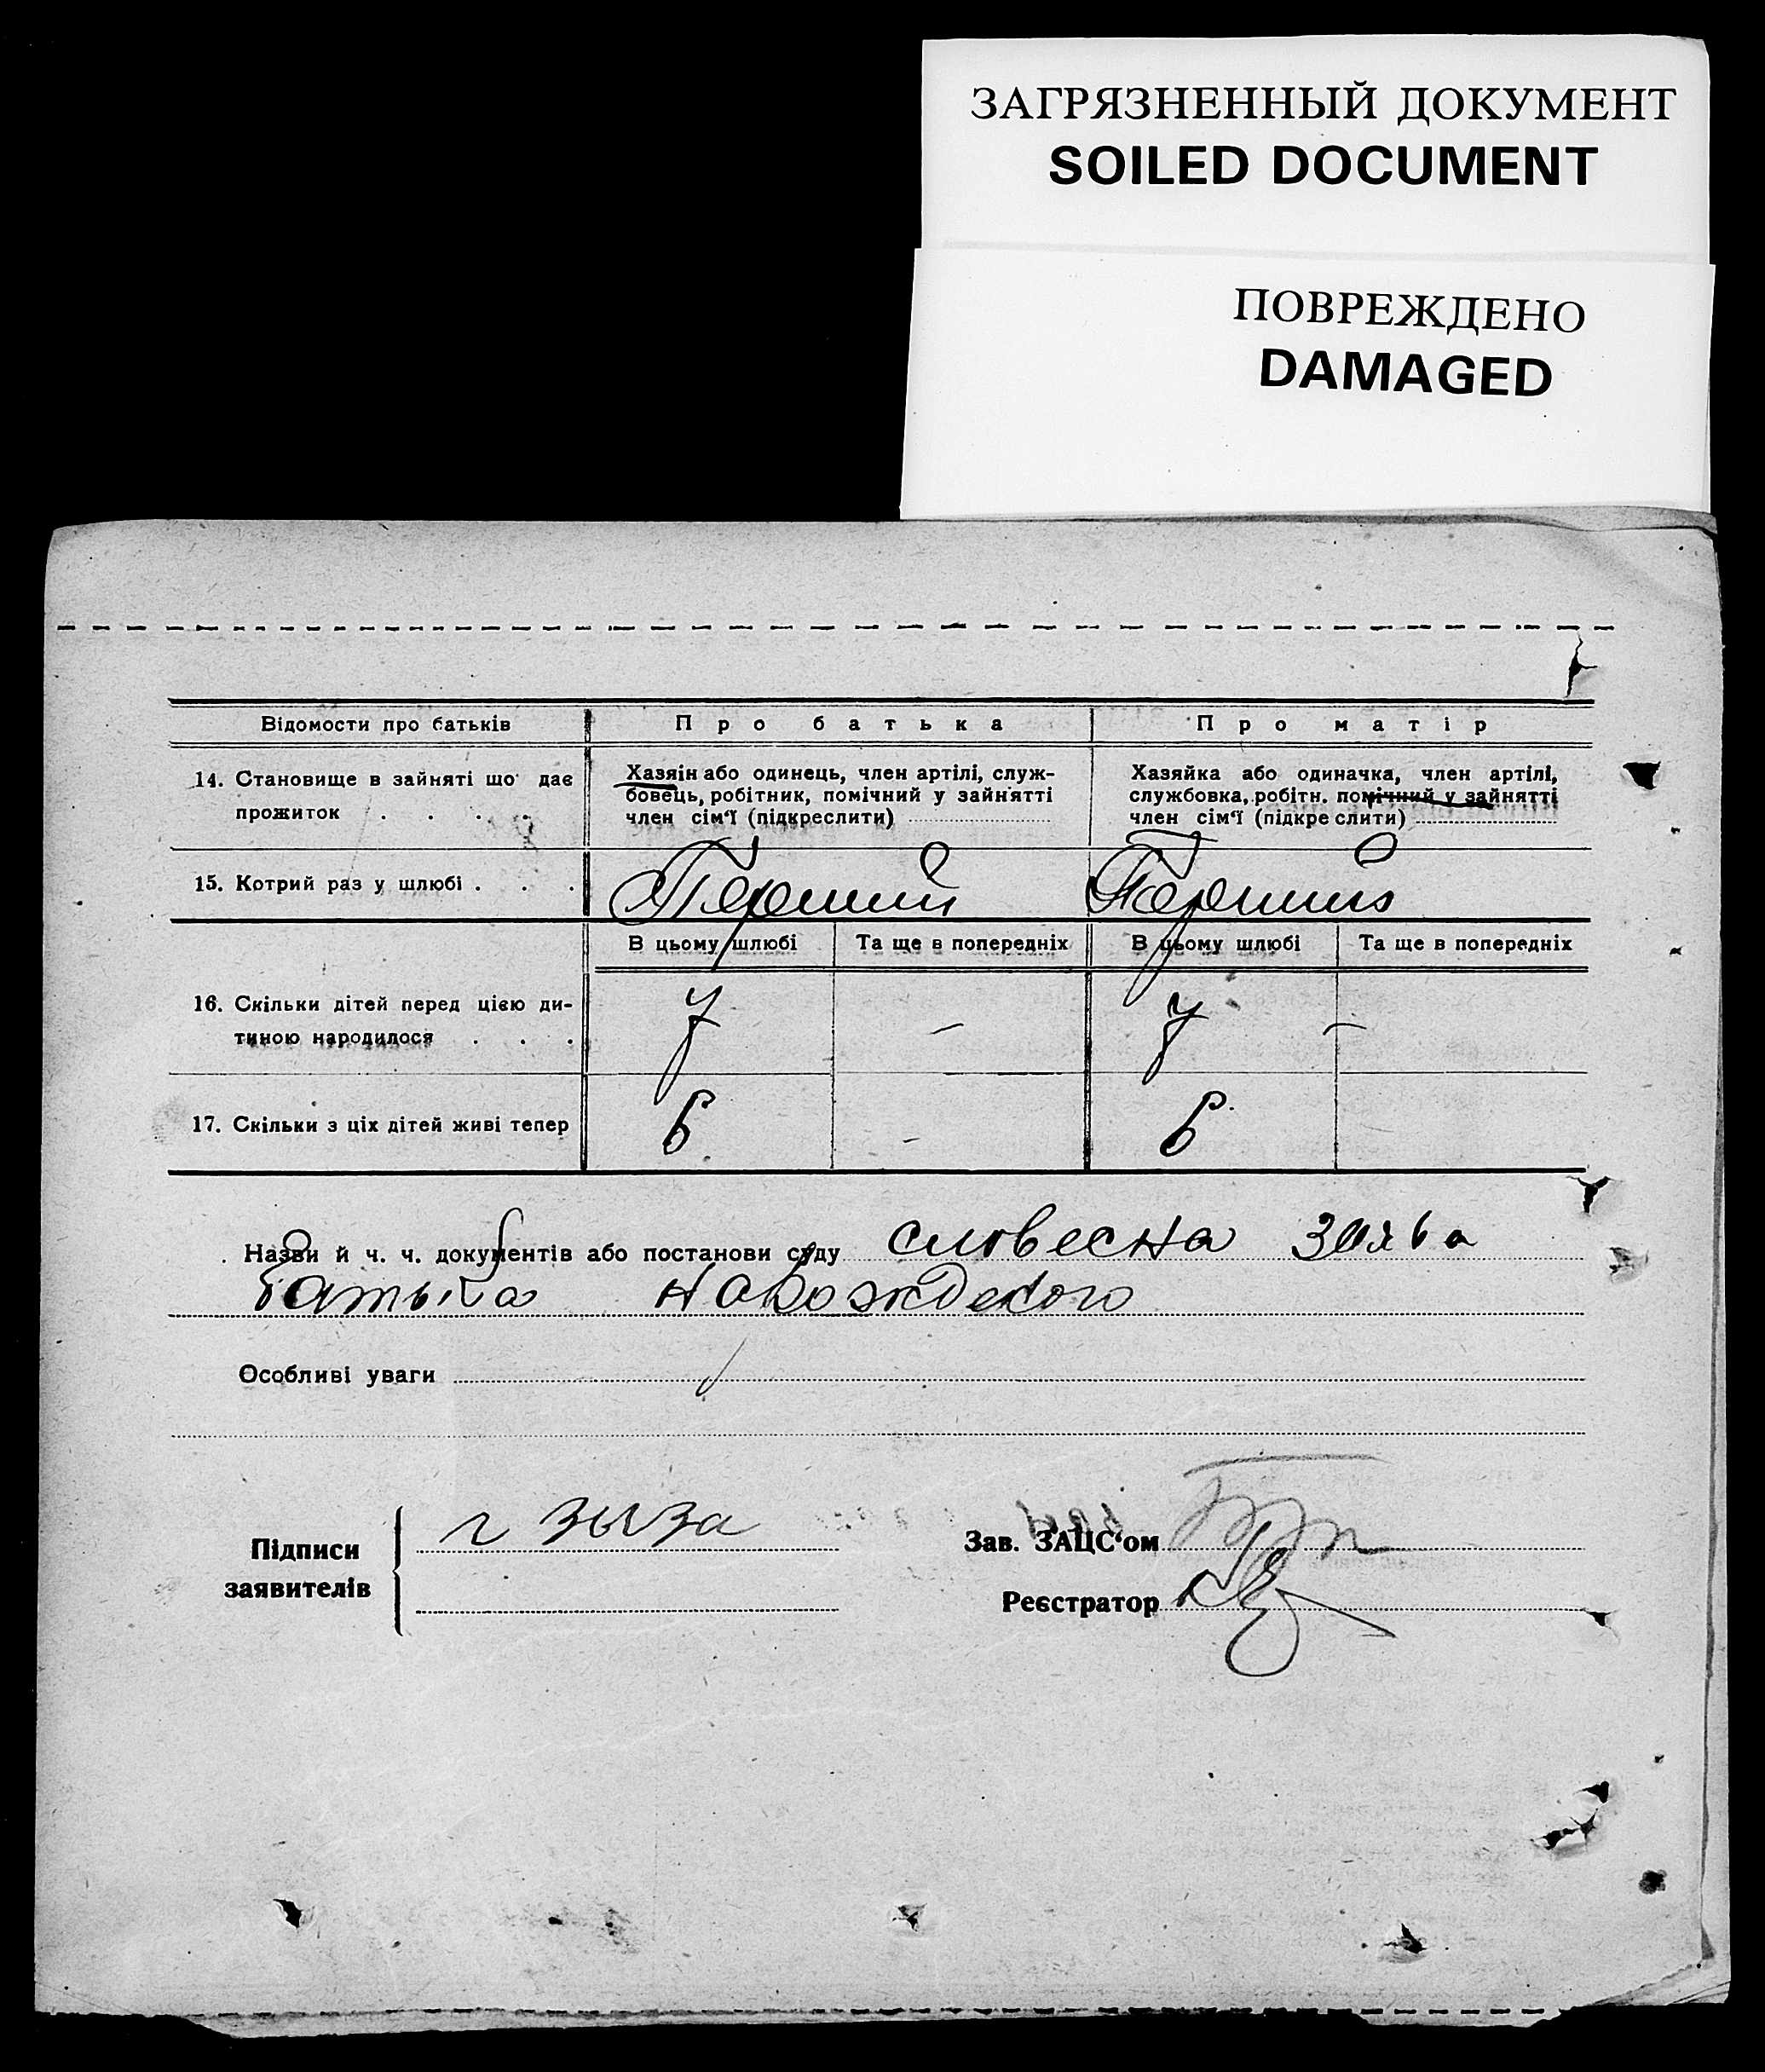 ЗАГРЯЗНЕННЫЙ ДОКУМЕНТ
SOILED DOCUMENT
ПОВРЕЖДЕНО
DAMAGED
Відомости про батьків Про батька Про матір
14. Становище в зайняті що дає прожиток . . . .
Хазяін або одинець, член артілі, служ-
бовець, робітник, помічний у зайнятті
член сім'ї (підкреслити)
Хазяйка або одиначка, член артілі,
службовка, робітн. помічний у зайнятті
член сім'ї (підкреслити)
15. Котрий раз у шлюбі . . . Перший Перший
В цьому шлюбі Та ще в попередніх В цьому шлюбі Та ще в попередніх
16. Скільки дітей перед цією ди-
тиною народилося . . . 7 — 7 —
17. Скільки з ціх дітей живі тепер 6 - 6
Назви й ч. ч. документів або постанови суду словесна заява
батька
Особливі уваги
Підписи
заявителів
Зав. ЗАЦС'ом
Реєстратор